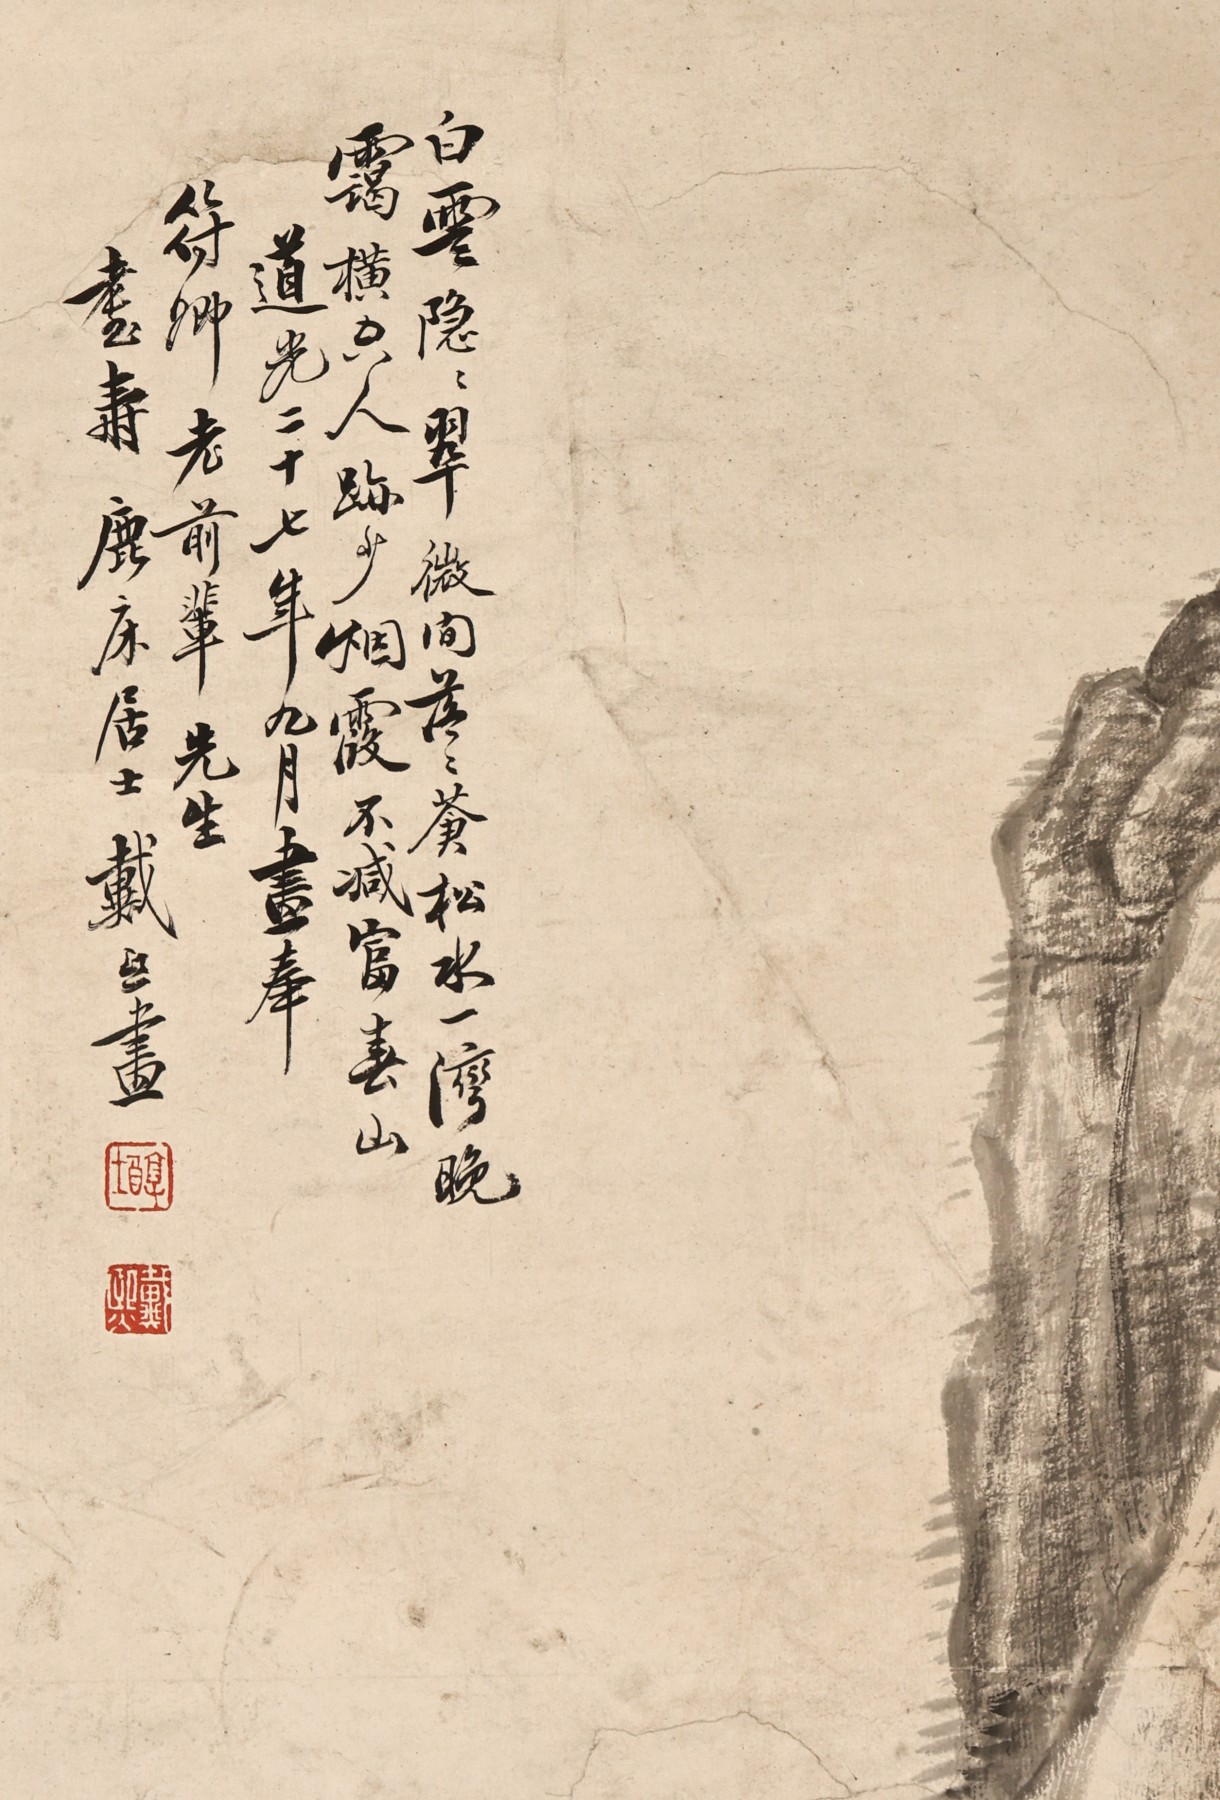 白雲隐〻翠微間落〻蒼松水一灣晚
靄橫空人跡少烟霞不減富春山
道光二十七年九月畫奉
符卿老前輩先生
耋壽 鹿床居士戴熙畫
醇士
戴熙